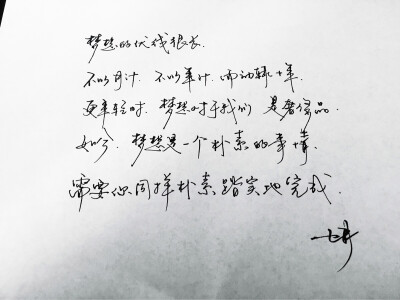 梦想的伏线很长.
不以月计. 不以年计. 而动辄十年.
更年轻时. 梦想对于我们 是奢侈品.
如今. 梦想是一个朴素的事情.
需要你同样朴素踏实地完成.